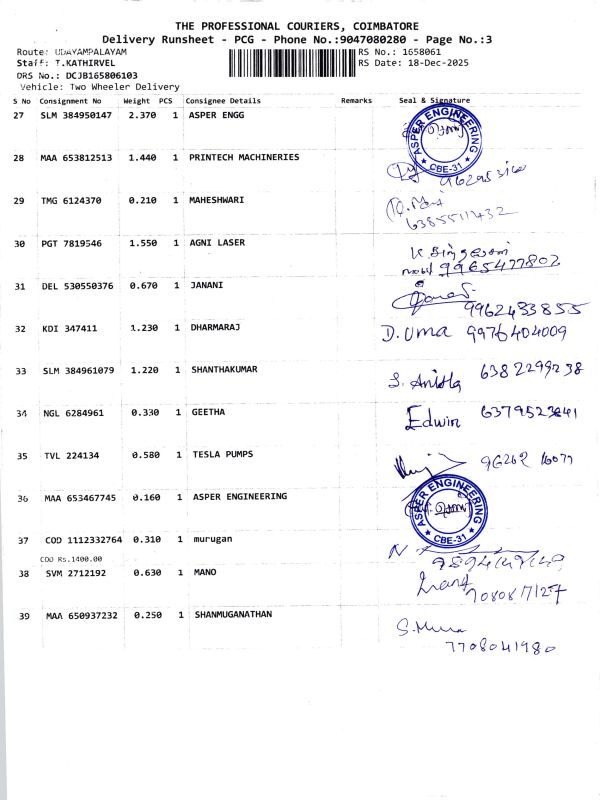 THE PROFESSIONAL COURIERS, COIMBATORE
Delivery Runsheet - PCG - Phone No.:9047080280 - Page No.:3
Route: UDAYAMPALAYAM
RS No.: 1658061
Staff: T.KATHIRVEL
RS Date: 18-Dec-2025
DRS No.: DCJB165806103
Vehicle: Two Wheeler Delivery
S No Consignment No Weight PCS Consignee Details Remarks Seal & Signature
27 SLM 384950147 2.370 1 ASPER ENGG
ASPER ENGINEERING
CBE-31
28 MAA 653812513 1.440 1 PRINTECH MACHINERIES
29 TMG 6124370 0.210 1 MAHESHWARI
6385511432
30 PGT 7819546 1.550 1 AGNI LASER
9965477802
31 DEL 530550376 0.670 1 JANANI
9962433855
32 KDI 347411 1.230 1 DHARMARAJ D. Uma 9976404009
33 SLM 384961079 1.220 1 SHANTHAKUMAR
6382299238
34 NGL 6284961 0.330 1 GEETHA Edwin
35 TVL 224134 0.580 1 TESLA PUMPS
96262 16077
36 MAA 653467745 0.160 1 ASPER ENGINEERING
ASPER ENGINEERING
CBE-31
37 COD 1112332764 0.310 1 murugan
COD Rs.1400.00
38 SVM 2712192 0.630 1 MANO
39 MAA 650937232 0.250 1 SHANMUGANATHAN
7708041980